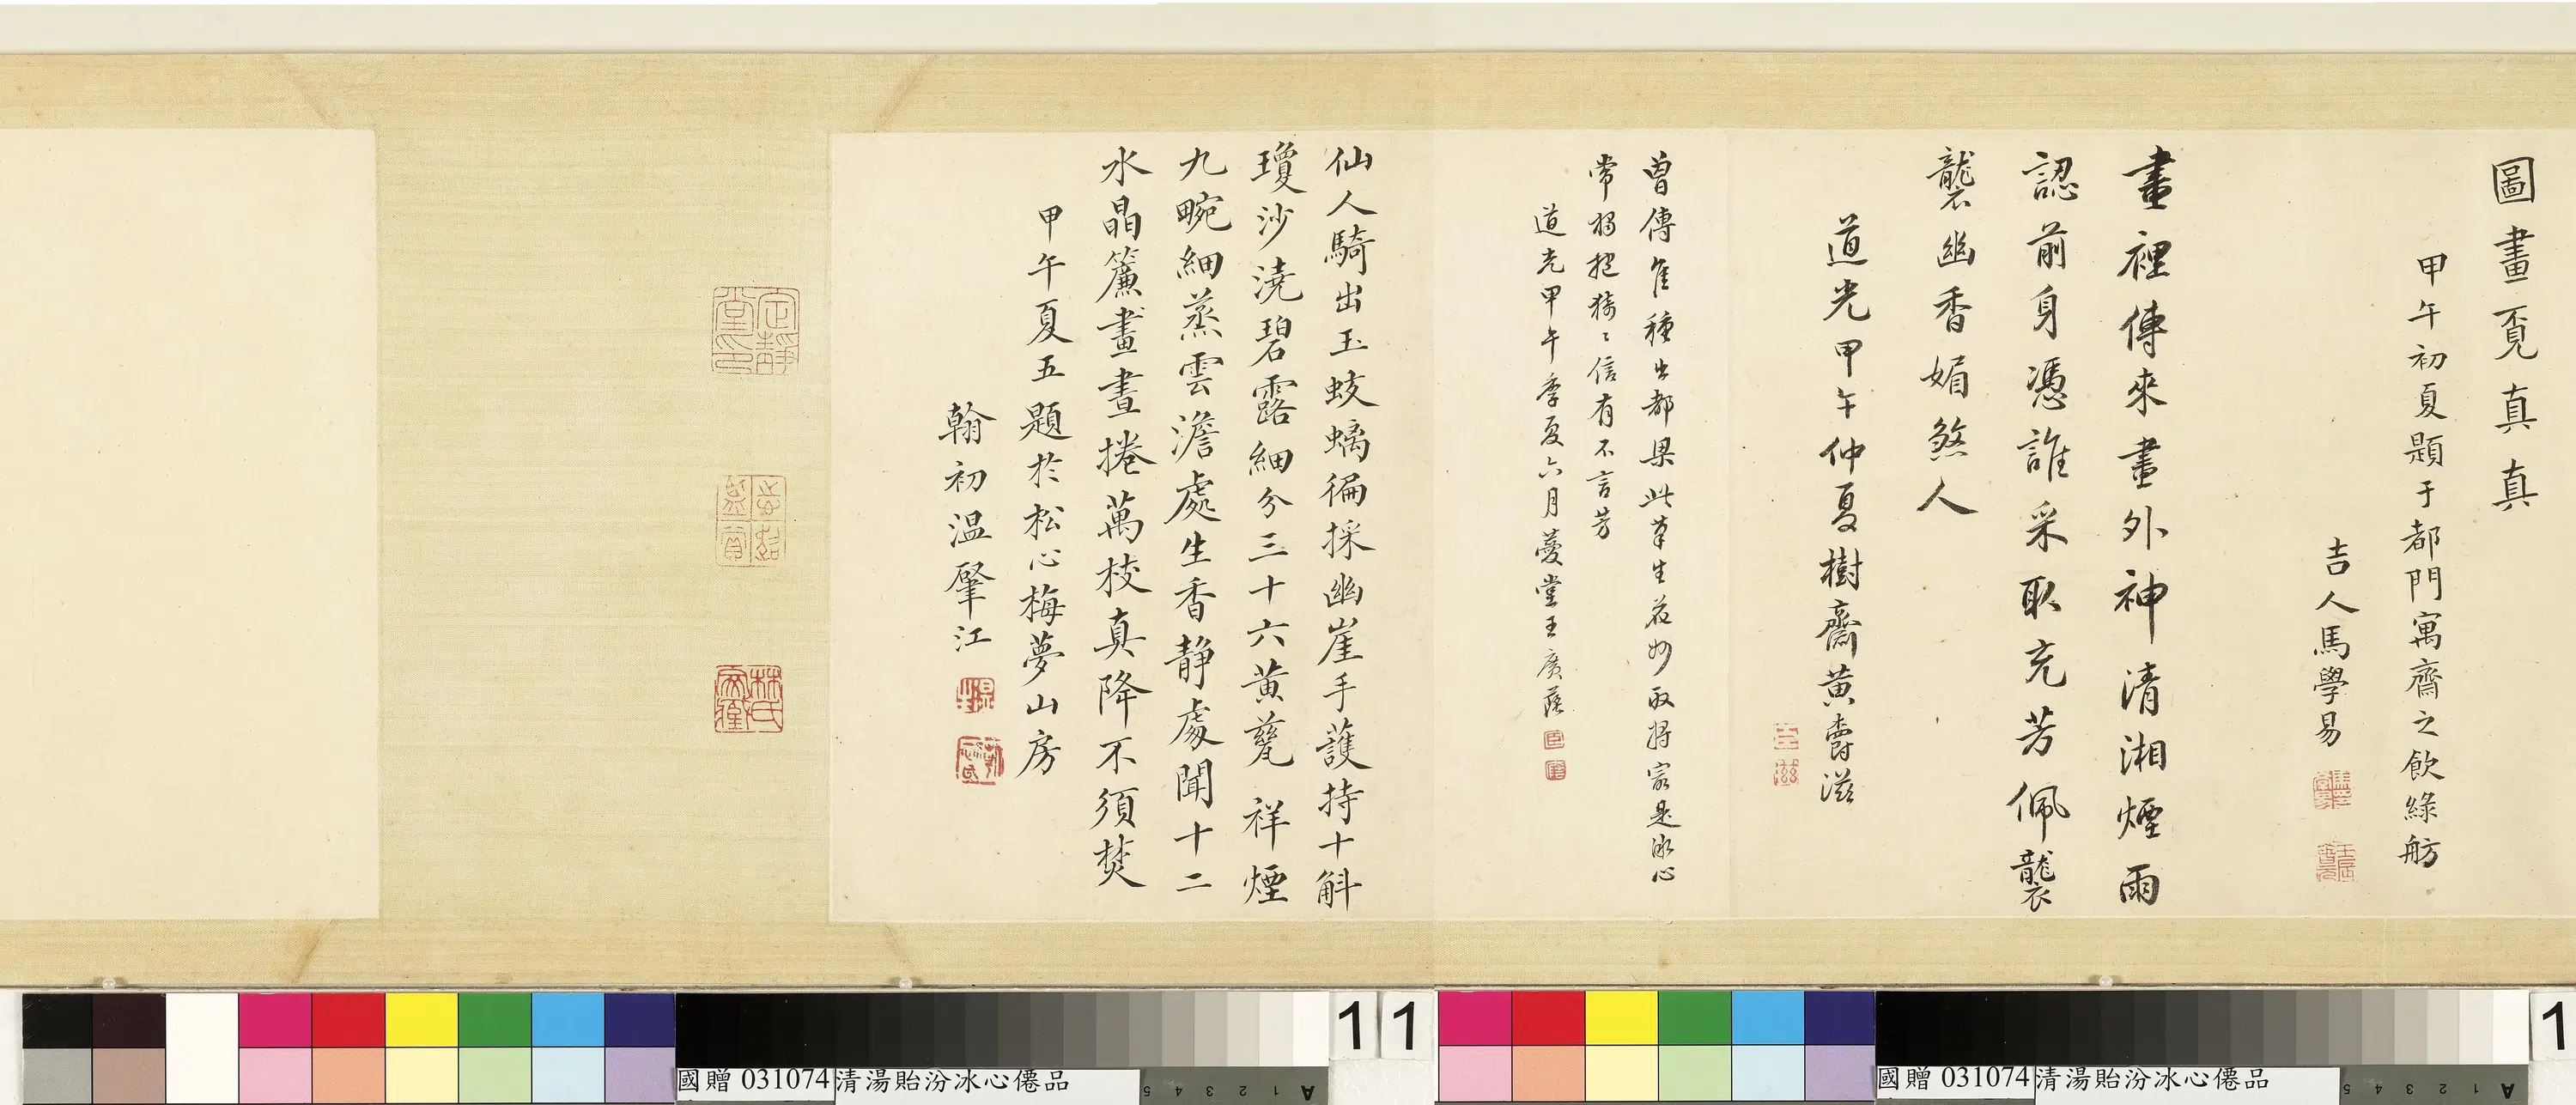 圖畫覔真真
甲午初夏題于都門寓齋之飲綠舫
吉人馬學易
畫裡傳來畫外神清湘煙雨
認前身憑誰采取充芳佩襲
襲幽香媚煞人
道光甲午仲夏樹齋黃爵滋
曾傳隹種出都梁此草生花妙取將寂是冰心
常獨抱猗〻信有不言芳
道光甲午季夏六月菱堂王廣蔭
仙人騎出玉蛟螭徧採幽崖手護持十斛
瓊沙澆碧露細分三十六黃甆祥煙
九畹細蒸雲澹處生香靜處聞十二
水晶簾畫晝捲萬枝真降不須焚
甲午夏五題於松心梅夢山房
翰初溫肇江
定靜堂
林氏
1
1
1
國贈 031074 清湯貽汾冰心僊品
5 4 3 2 1 A
國贈 031074 清湯貽汾冰心僊品
5 4 3 2 1 A